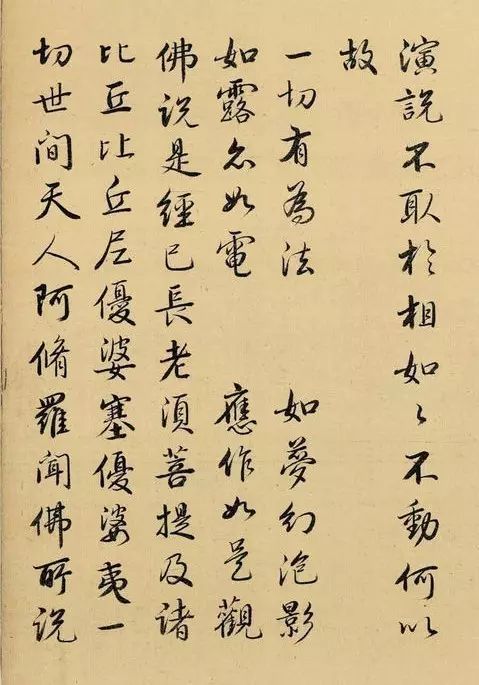 演說不取於相如〻不動何以
故
一切有為法　如夢幻泡影
如露亦如電　應作如是觀
佛說是經已長老須菩提及諸
比丘比丘尼優婆塞優婆夷一
切世間天人阿脩羅聞佛所說